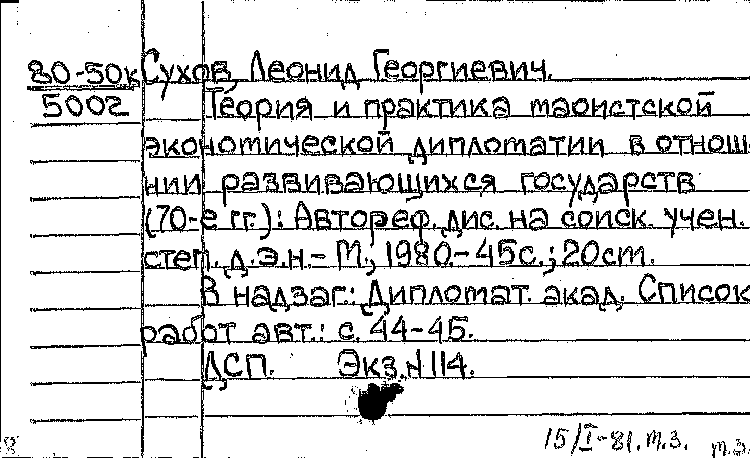 80-50к Сухов, Леонид Георгиевич.
5002 Теория и практика маоистской
экономической дипломатии в отнош
нии развивающихся государств
(70-е гг.): Автореф. дис. на соиск. учен.
степ. д.э.н.- М., 1980.- 45с.; 20см.
В надзаг.: Дипломат. акад. Список
работ авт.: с. 44-45.
ДСП. Экз.N 114.
15/I-81. т.з. т.з.